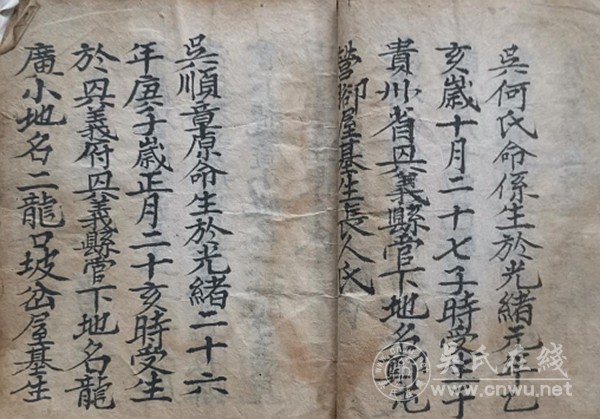 吳何氏命係生於光緒元年乙
亥歲十月二十七子時受生于
貴州省興義縣管下地名
營屋基生長人氏
吳順章原命生於光緒二十六
年庚子歲正月二十亥時受生
於興義付興義縣管下地名龍
廣小地名二龍口坡岔屋基生
吴氏在线
www.cnwu.net